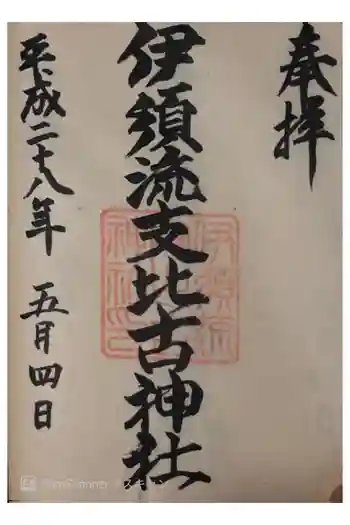 奉拝
伊須流支比古神社
平成二十八年 五月四日